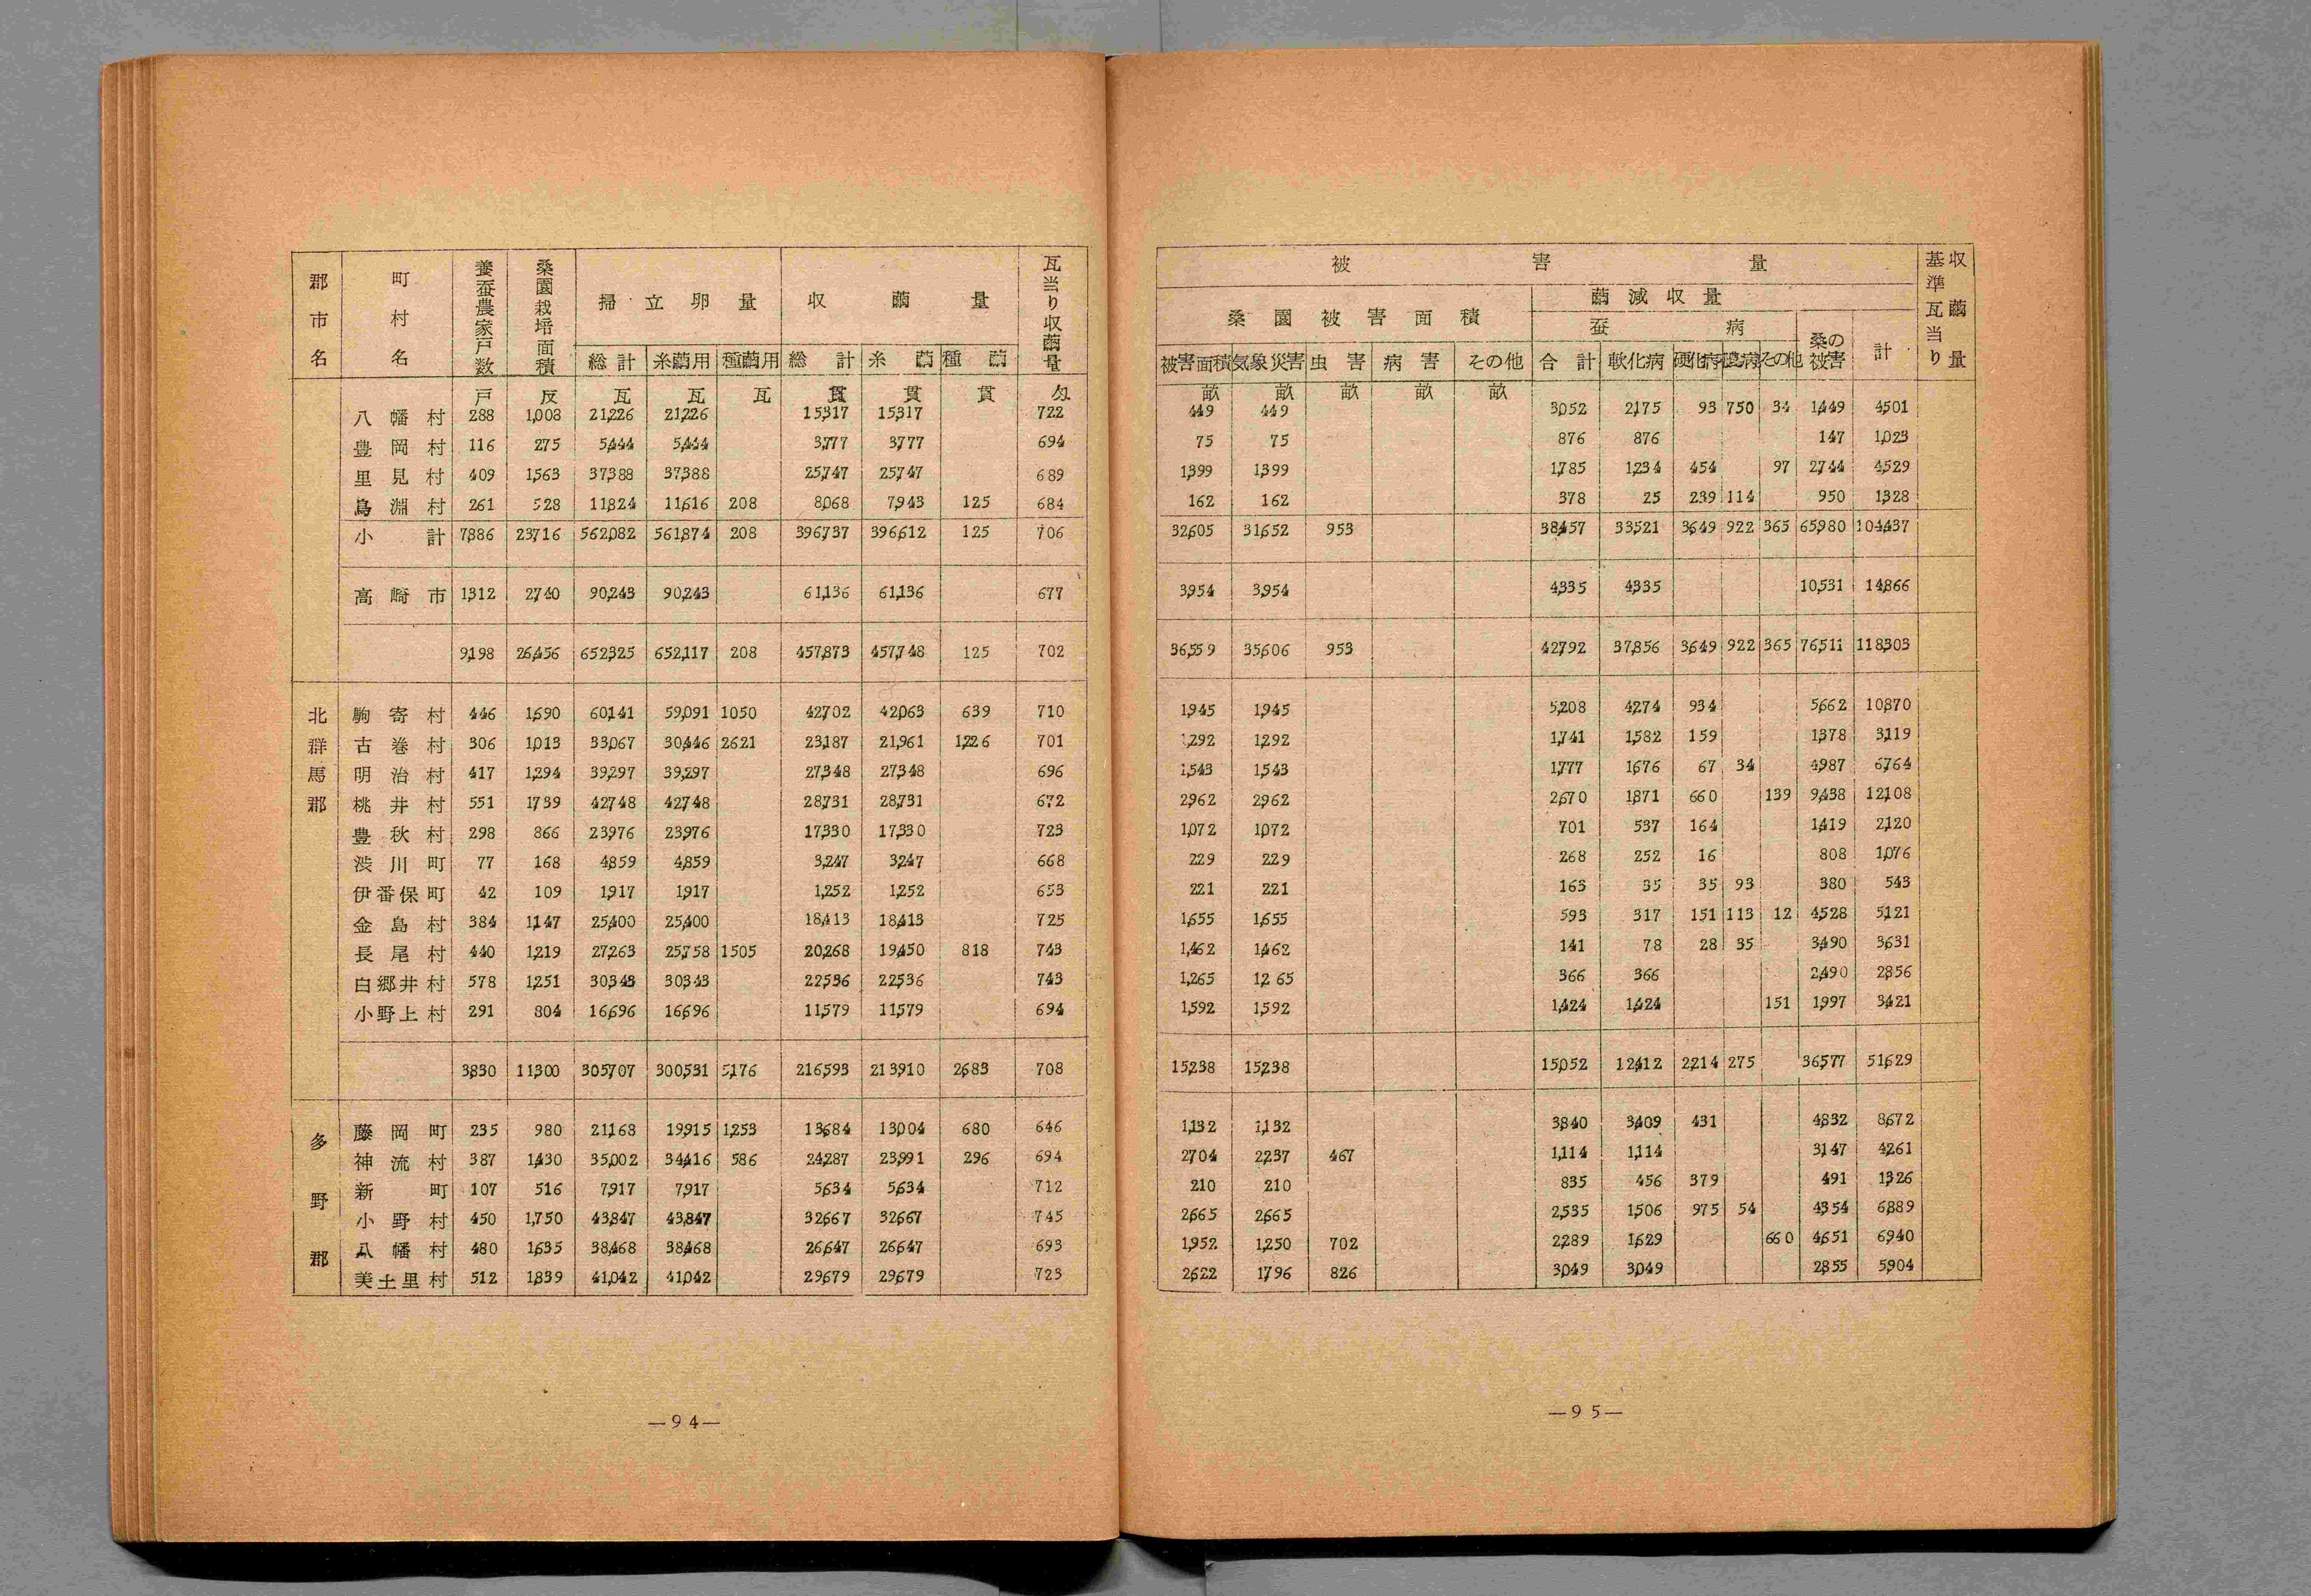 郡市名 町村名 養蚕農家戸数 桑園栽培面積 掃立卵量 収繭量 瓦当り収繭量
総計 糸繭用 種繭用 総計 糸繭 種繭
戸 反 瓦 瓦 瓦 貫 貫 貫 匁
八幡村 288 1,008 21,226 21,226 15,317 15,317 722
豊岡村 116 275 5,444 5,444 3,777 3,777 694
里見村 409 1,563 37,388 37,388 25,747 25,747 689
烏淵村 261 528 11,824 11,616 208 8,068 7,943 125 684
小計 7,886 23,716 562,082 561,874 208 396,737 396,612 125 706
高崎市 1,312 2,740 90,243 90,243 61,136 61,136 677
9,198 26,456 652,325 652,117 208 457,873 457,748 125 702
北群馬郡
駒寄村 446 1,690 60,141 59,091 1050 42,702 42,063 639 710
古巻村 306 1,013 33,067 30,446 2,621 23,187 21,961 1,226 701
明治村 417 1,294 39,297 39,297 27,348 27,348 696
桃井村 551 1,739 42,748 42,748 28,731 28,731 672
豊秋村 298 866 23,976 23,976 17,330 17,330 723
渋川町 77 168 4,859 4,859 3,247 3,247 668
伊番保町 42 109 1,917 1,917 1,252 1,252 653
金島村 384 1,147 25,400 25,400 18,413 18,413 725
長尾村 440 1,219 27,263 25,758 1505 20,268 19,450 818 743
白郷井村 578 1,251 30,343 30,343 22,536 22,536 743
小野上村 291 804 16,696 16,696 11,579 11,579 694
3,830 11,300 305,707 300,531 5,176 216,593 213,910 2,683 708
多野郡
藤岡町 235 980 21,168 19,915 1,253 13,684 13,004 680 646
神流村 387 1,430 35,002 34,416 586 24,287 23,991 296 694
新町 107 516 7,917 7,917 5,634 5,634 712
小野村 450 1,750 43,847 43,847 32,667 32,667 745
八幡村 480 1,635 38,468 38,468 26,647 26,647 693
美土里村 512 1,839 41,042 41,042 29,679 29,679 723
—94—
被害量 基準瓦当り収繭量
桑園被害面積 繭減収量
蚕病 桑の被害 計
被害面積 気象災害 虫害 病害 その他 合計 軟化病 硬化病 膿病 その他
畝 畝 畝 畝 畝
449 449 3,052 2,175 93 750 34 1,449 4,501
75 75 876 876 147 1,023
1,399 1,399 1,785 1,234 454 97 2,744 4,529
162 162 378 25 239 114 950 1,328
32,605 31,652 953 38,457 33,521 3,649 922 365 65,980 104,437
3,954 3,954 4,335 4,335 10,531 14,866
36,559 35,606 953 42,792 37,856 3,649 922 365 76,511 118,303
1,945 1,945 5,208 4,274 934 5,662 10,870
1,292 1,292 1,741 1,582 159 1,378 3,119
1,543 1,543 1,777 1,676 67 34 4,987 6,764
2,962 2,962 2,670 1,871 660 139 9,438 12,108
1,072 1,072 701 537 164 1,419 2,120
229 229 268 252 16 808 1,076
221 221 163 35 35 93 380 543
1,655 1,655 593 317 151 113 12 4,528 5,121
1,462 1,462 141 78 28 35 3,490 3,631
1,265 12 65 366 366 2,490 2,856
1,592 1,592 1,424 1,424 151 1,997 3,421
15,238 15,238 15,052 12,412 2,214 275 36,577 51,629
1,132 1,132 3,840 3,409 431 4,832 8,672
2,704 2,237 467 1,114 1,114 3,147 4,261
210 210 835 456 379 491 1,326
2,665 2,665 2,535 1,506 975 54 4,354 6,889
1,952 1,250 702 2,289 1,629 660 4,651 6,940
2,622 1,796 826 3,049 3,049 2,855 5,904
—95—